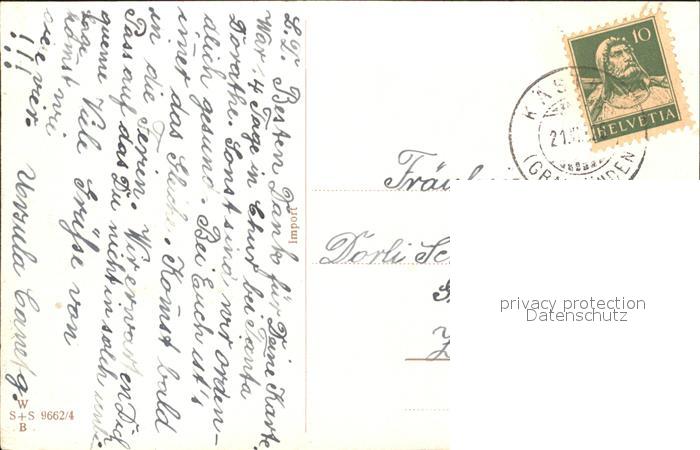 L.D. Besten Dank für Deine Karte.
War 14 Tage in Chur bei Tanta
Dorathe. Sonst sind wir orden-
dlich gesund. Bei Euch ist's
imer das Gleiche. Komst bald
in die Ferien. Wir erwarten Dich
Pass auf das Du nicht in solch unbe-
queme
Viele Grüsse von
Ursula Caneg.
Import
W
S+S 9662/4
B
10
HELVETIA
21.
(GRAUBÜNDEN)
Fräu
Dorli Sc
privacy protection
Datenschutz